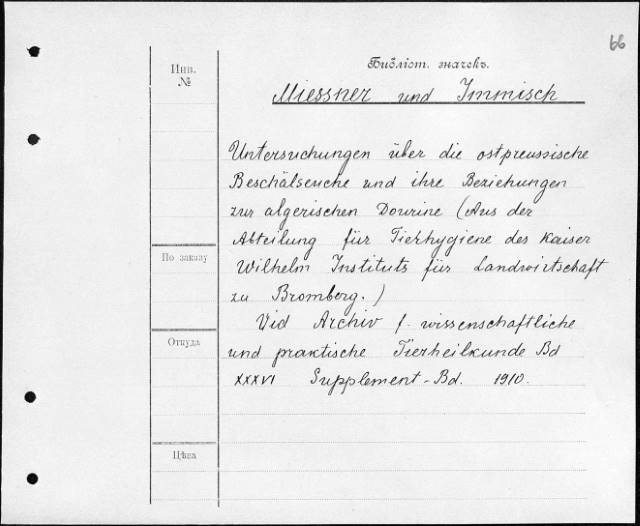 66
Библіот. значекъ.
Инв.
№
Miessner und Immisch
Untersuchungen über die ostpreussische
Beschälseuche und ihre Beziehungen
zur algerischen Dourine (Aus der
Abteilung für Tierhygiene des Kaiser
По заказу
Wilhelm Instituts für Landwirtschaft
zu Bromberg.)
Vid Archiv f. wissenschaftliche
Откуда
und praktische Tierheilkunde Bd
XXXVI Supplement-Bd. 1910.
Цѣна